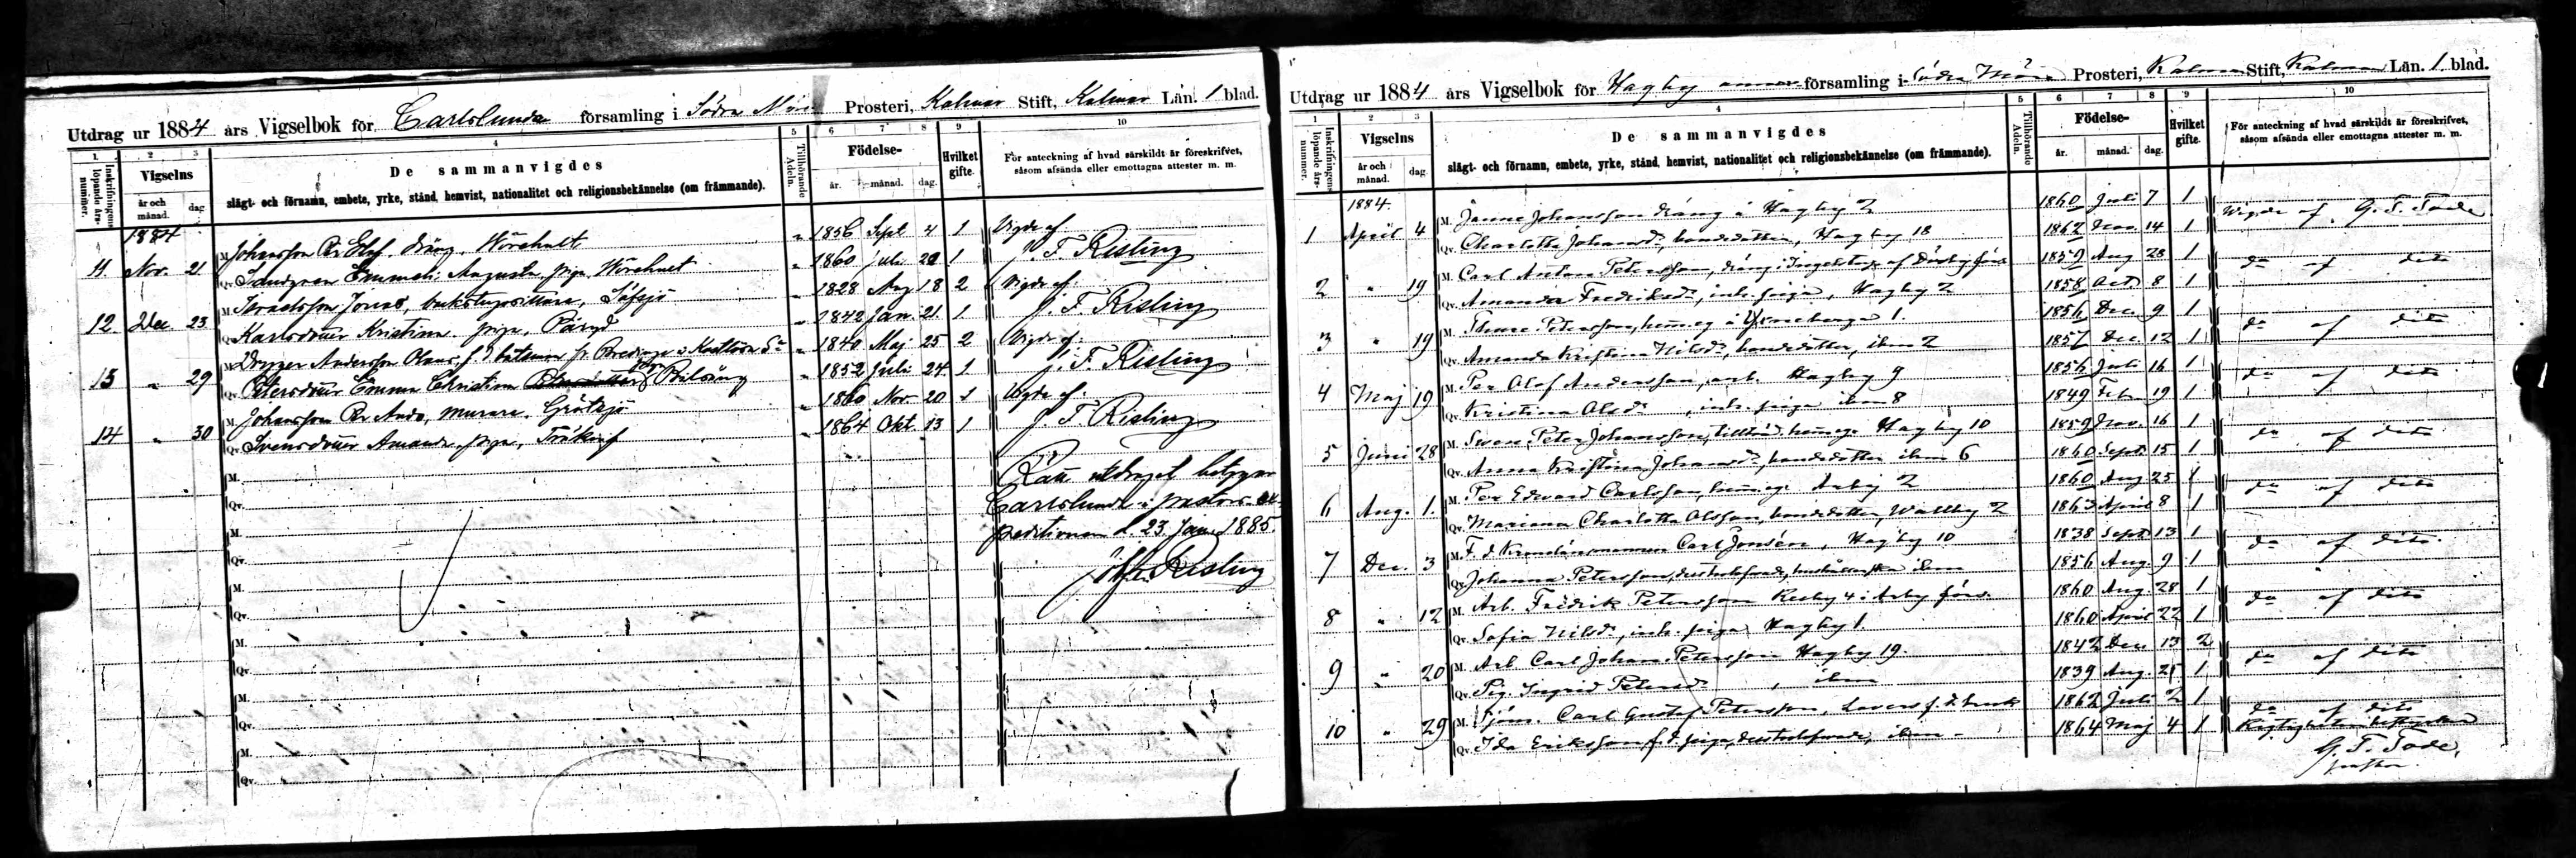 Utdrag ur 1884 års Vigselbok för Carlslunda församling i Södra Möre Prosteri, Kalmar Stift, Kalmar Län. 1 blad.
1. 2 3 4 5 6 7 8 9 10
Inskrifningens löpande års-nummer. Vigselns De sammanvigdes Tillhörande Adeln. Födelse- Hvilket gifte. För anteckning af hvad särskildt är föreskrifvet, såsom afsända eller emottagna attester m. m.
år och månad. dag slägt- och förnamn, embete, yrke, stånd, hemvist, nationalitet och religionsbekännelse (om främmande). år. månad. dag.
1884
11 Nov. 21 M. Johansson Per Elof, dräng, 1856 Sept 4 1 Vigde af
Qv. Emmeli Augusta, piga, 1860 juli 1 J. F. Risling
12. Dec. 23 M. Jonas, 1828 Aug 18 2 Vigde af
Qv. Karlsdotter Kristina piga, Påryd 1842 Jan. 21 1 J. F. Risling
13 " 29 M. Andersson Olaus, f. d. båtsman 1840 Maj 25 2 Vigde af
Qv. Petersdotter Emma Christina 1852 Juli 24 1 J. F. Risling
14 " 30 M. Johansson Per Aug, murare, 1860 Nov 20 1 Vigde af
Qv. Svensdotter Amanda piga, 1864 Okt 13 1 J. F. Risling
M. Rätt utdraget betygar
Qv. Carlslunda i pastors ex-
M. peditionen d. 23 Jan. 1885.
Qv. Risling
M.
Qv.
M.
Qv.
M.
Qv.
M.
Qv.
Utdrag ur 1884 års Vigselbok för Hagby församling i Södra Möre Prosteri, Kalmar Stift, Kalmar Län. 1 blad.
1 2 3 4 5 6 7 8 9 10
Inskrifningens löpande års-nummer. Vigselns De sammanvigdes Tillhörande Adeln. Födelse- Hvilket gifte. För anteckning af hvad särskildt är föreskrifvet, såsom afsända eller emottagna attester m. m.
år och månad. dag. slägt- och förnamn, embete, yrke, stånd, hemvist, nationalitet och religionsbekännelse (om främmande). år. månad. dag.
1884.
1 April 4 M. Janne Johansson dräng i Hagby 2 1860 Juli 7 1 Wigde af G. T. Tode
Qv. Charlotta Johansdr, bondedotter, Hagby 18 1862 Nov. 14 1
2 " 19 M. Carl Anton Petersson, dräng i Ingelstorp af Dörby förs 1859 Aug 28 1 do af dito
Qv. Amanda Fredriksdr, inh. piga, Hagby 2 1858 Oct. 8 1
3 " 19 M. Thure Petersson, hemeg. i 1. 1856 Dec. 9 1 do af dito
Qv. Amanda Kristina Nilsdr, bondedotter, ibm 2 1857 Dec 12 1
4 Maj 19 M. Per Olof Andersson, arb. Hagby 9 1856 Juli 16 1 do af dito
Qv. Kristina Olsdr, inh. piga ibm 8 1849 Febr 19 1
5 Juni 28 M. Swen Peter Johansson, hemeg. Hagby 10 1859 Nov. 16 1 do af dito
Qv. Anna Kristina Johansdr, bondedotter ibm 6 1860 Sept. 15 1
6 Aug. 1. M. Per Edward Carlsson, hemeg. Arby 2 1860 Aug 25 1 do af dito
Qv. Mariana Charlotta Olsson, bondedotter, Wallby 2 1863 April 8 1
7 Dec. 3 M. F. d. Kronolänsmannen Carl Jonsén, Hagby 10 1838 Sept. 13 1 do af dito
Qv. Johanna Petersson, ibm 1856 Aug. 9 1
8 " 12 M. Arb. Fredrik Petersson Resby 4 i Arby förs. 1860 Aug. 28 1 do af dito
Qv. Sofia Nilsdr, inh. piga Hagby 1. 1860 April 22 1
9 " 20 M. Arb Carl Johan Petersson Hagby 19. 1842 Dec 13 2 do af dito
Qv. Pig. Ingrid Petersdr, ibm 1839 Aug. 21 1
10 " 29 M. Carl Gustaf Petersson, 1862 Juli 2 1 do af dito
Qv. Ida Eriksson f. d. piga, ibm 1864 Maj 4 1 Riktigheten bestyrker
G. T. Tode,
pastor.